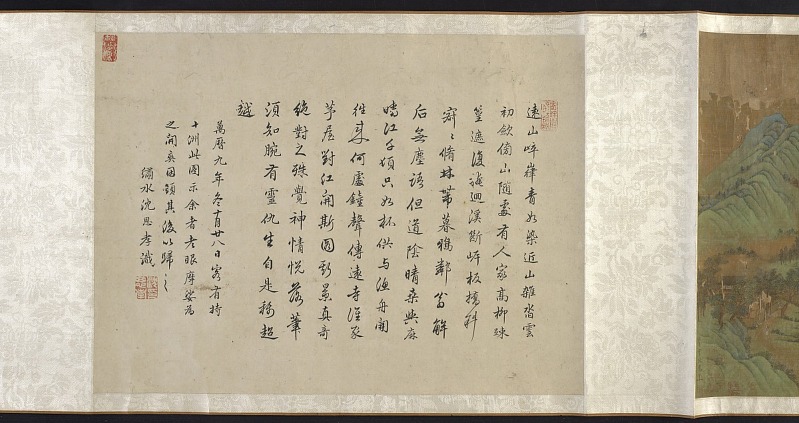 遠山崪嵂青如染近山雜沓雲
初斂傍山隨處有人家高柳疎
篁遮復 迴溪斷岸板橋斜
寂〻脩林帶暮鴉鄰翁解
后無塵語但道陰晴桑與麻
晴江千頃只如杯供與漁舟閒
往來何處鐘聲傳遠寺誰家
茅屋對江開斯圖 景真奇
絕對之殊覺神情悅落筆
須知腕有靈仇生自是稱超
越
萬曆九年冬十月廿八日客有持
十洲此圖示余者老眼摩娑為
之開爽因題其後以歸之
繡水沈思孝識